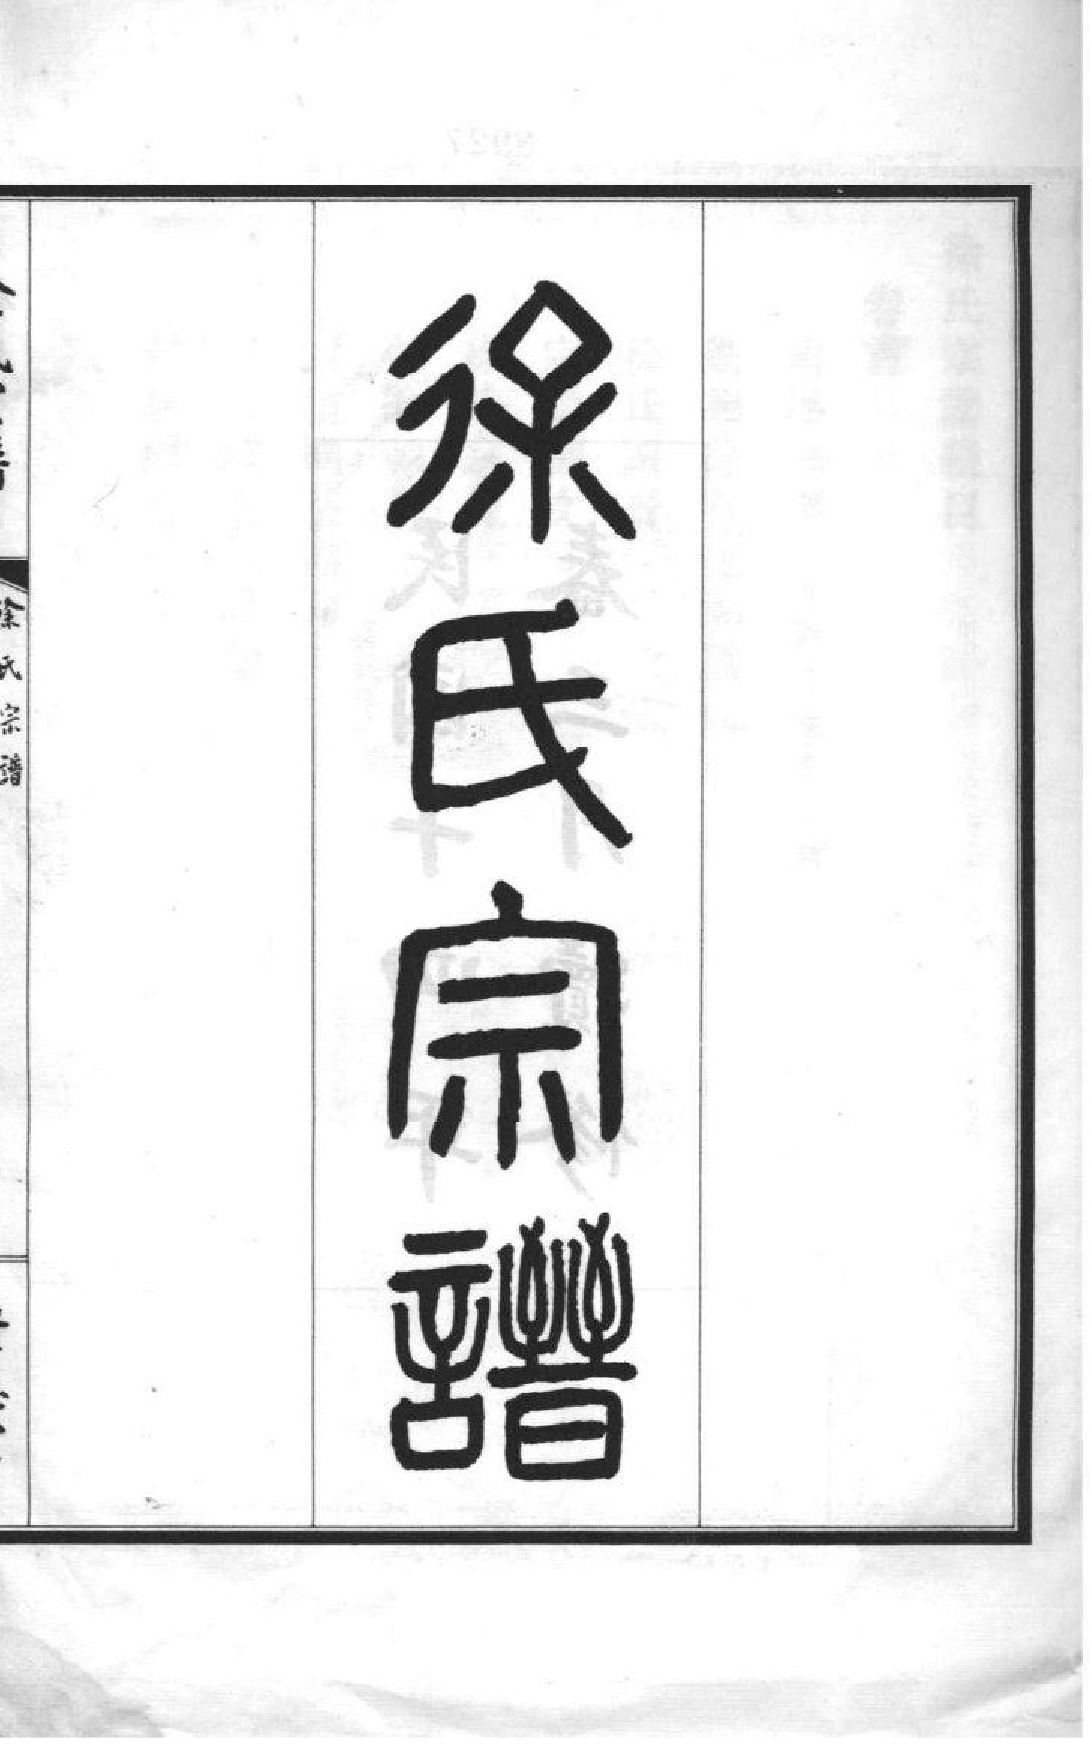 徐氏宗譜
徐氏宗譜